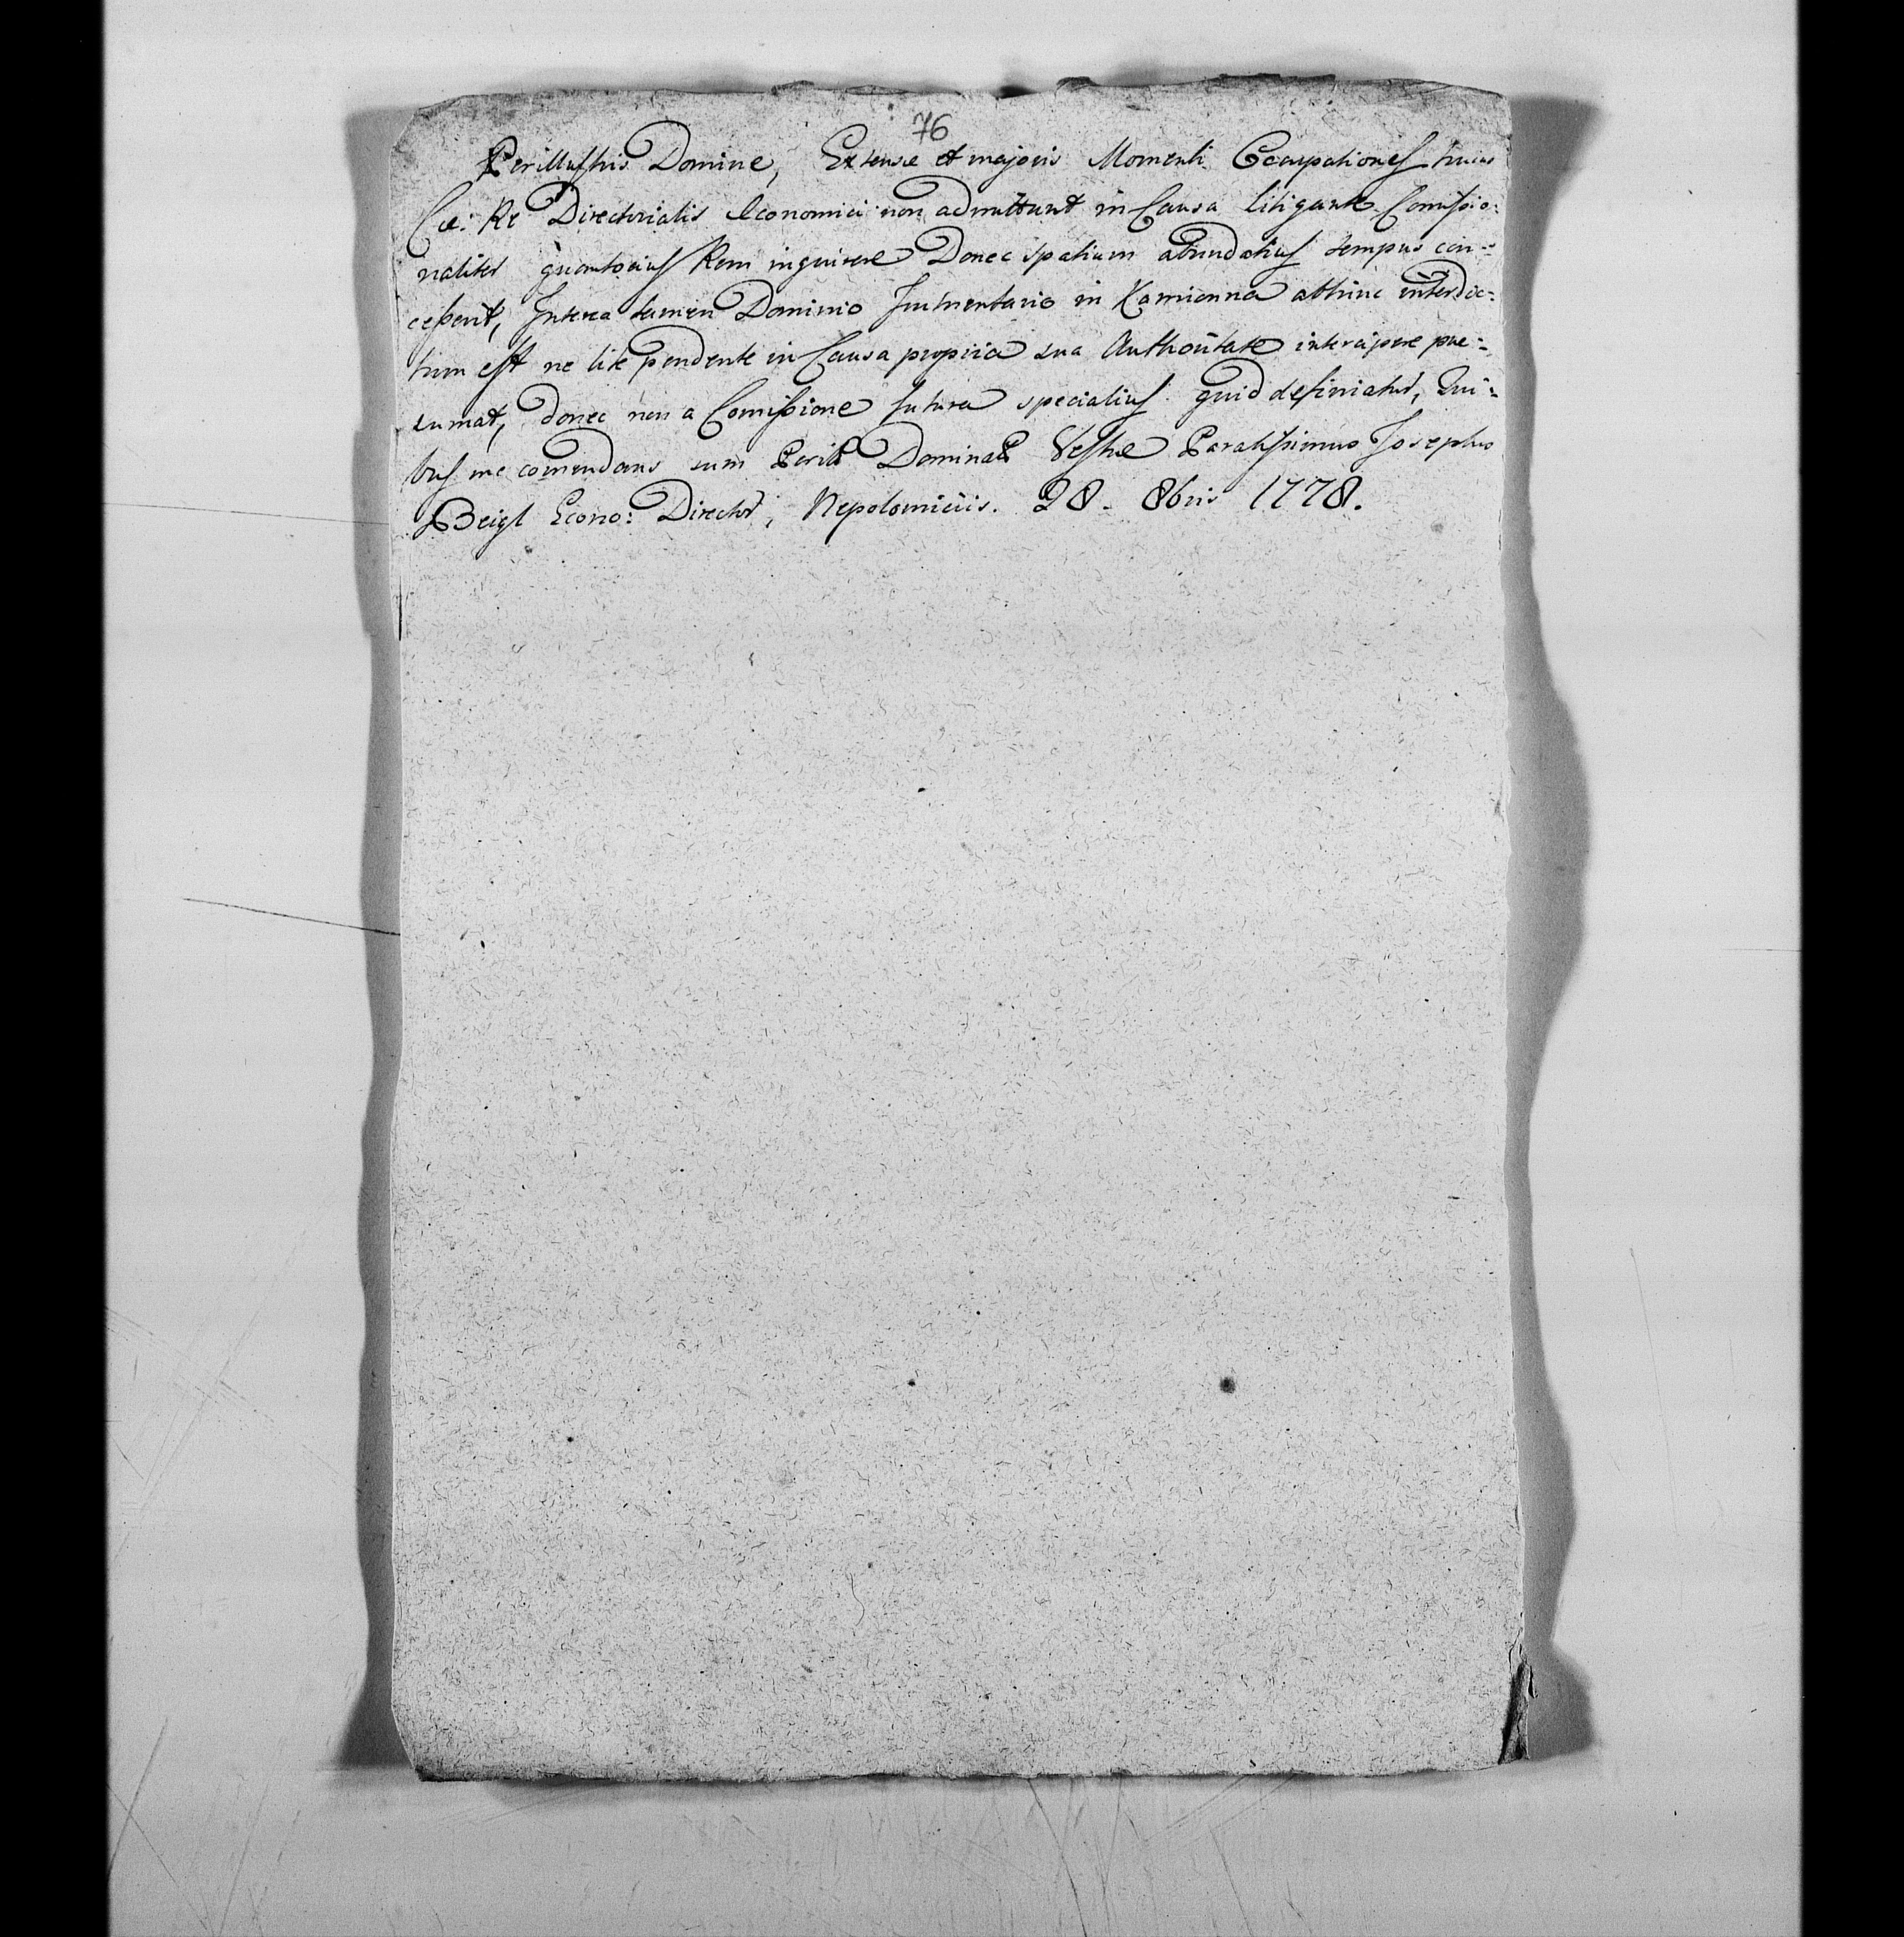 76
Perillustris Domine, Extensæ et majoris Momenti Occupationes huius
Cæ: Re Directorialis Economici non admittunt in Causa litigante Comissio:
naliter quantocius Rem inquirere Donec spatium abundatius tempus con-
cesserit, Interea tamen Dominio Frumentario in Kamionna abhinc interdic:
tum est ne lite pendente in Causa propria sua Authoritate interripere prae:
sumat, donec non a Comissione futura specialius quid definiatur, Qui:
bus me comendans sum Perill Dominaõ Vestræ Paratissimus Josephus
Beigl Econo: Director, Nepolomiciis. 28. 8bris 1778.